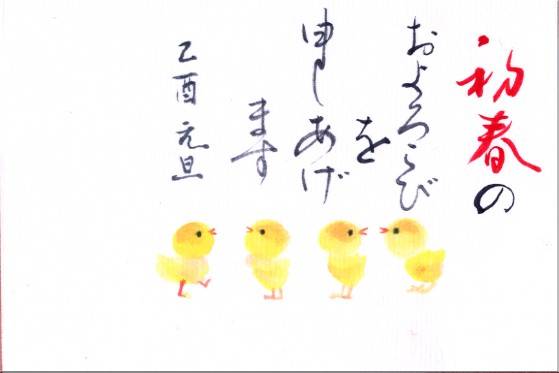 初春の
およろこび
を
申しあげ
ます
乙酉 元旦